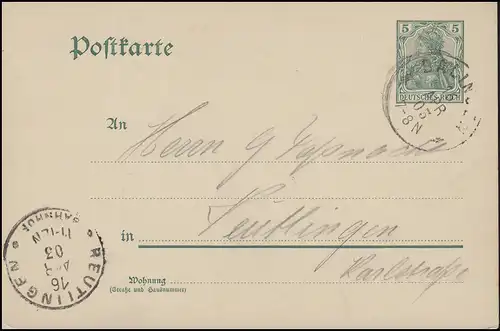 Postkarte
5 5
DEUTSCHES REICH
BALINGEN
APR
03
7-8N
An
Herrn G
Reutlingen
in
Karlstraße
Wohnung
(Straße und Hausnummer)
REUTLINGEN
16
APR
03
11-12N
BAHNHOF